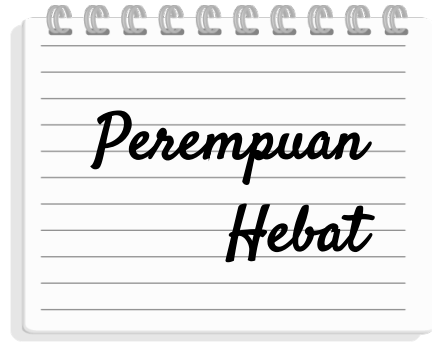 Perempuan
Hebat